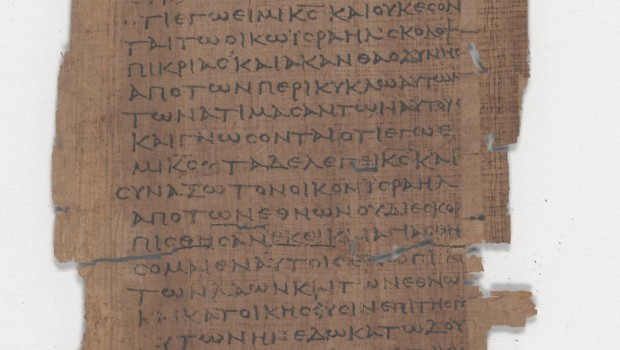 ΤΙΕΓΩΕΙΜΙΚ̅Σ̅ ΚΑΙΟΥΚΕϹΟΝ
ΤΑΙΤΩΟΙΚΩΙϹΡΑΗΛϹΚΟΛΟΨ
ΠΙΚΡΙΑϹΚΑΙΑΚΑΝΘΑΟΔΥΝΗϹ
ΑΠΟΤΩΝΠΕΡΙΚΥΚΛΩΑΥΤΩΝ
ΤΩΝΑΤΙΜΑϹΑΝΤΩΝΑΥΤΟΥϹ
ΚΑΙΓΝΩϹΟΝΤΑΙΟΤΙΕΓΩΕΙ
ΜΙΚ̅Ϲ̅ ΤΑΔΕΛΕΓΕΙΚ̅Ϲ̅ ΚΑΙ
ϹΥΝΑΞΩΤΟΝΟΙΚΟΝΙϹΡΑΗΛ
ΑΠΟΤΩΝΕΘΝΩΝΟΥΔΙΕϹΚΟΡ
ΠΙϹΘΗϹΑΝΕΚΕΙΚΑΙΑΓΙΑϹΘΗ
ϹΟΜΑΙΕΝΑΥΤΟΙϹ ΩΠΙΟΝ
ΤΩΝΛΑΩΝΚΑΙΤΩΝΕΘΝΩ
ΚΑΙΚΑΤΟΙΚΗϹΟΥϹΙΝΕΠΙΤΗϹΓΗ
ΥΤΩΝΗΝ ΕΔΩΚΑΤΩΔΟΥ